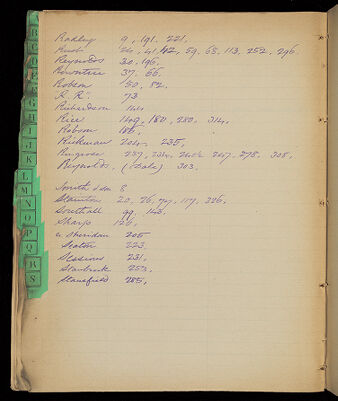 B
C
D
E
F
G
H
I
J
K
L
M
N
O
P
Q
R
S
Radley 9, 191, 221,
26, 41, 42, 59, 65, 113, 252, 296
Reynolds 30, 196,
Rowntree 37, 66.
Robson 50, 82,
R. R. 73
Richardson 144
Rice 149, 180, 280, 314,
Robson 186,
Rickman 204, 235,
278, 305,
Reynolds, 303.
Smith 8
Stainton 20, 26, 117, 326,
Southall 99, 143.
Sharp 126,
Sheridan 205
Seaton 223
Sessions 231,
Starbuck 253,
Stansfield 285,